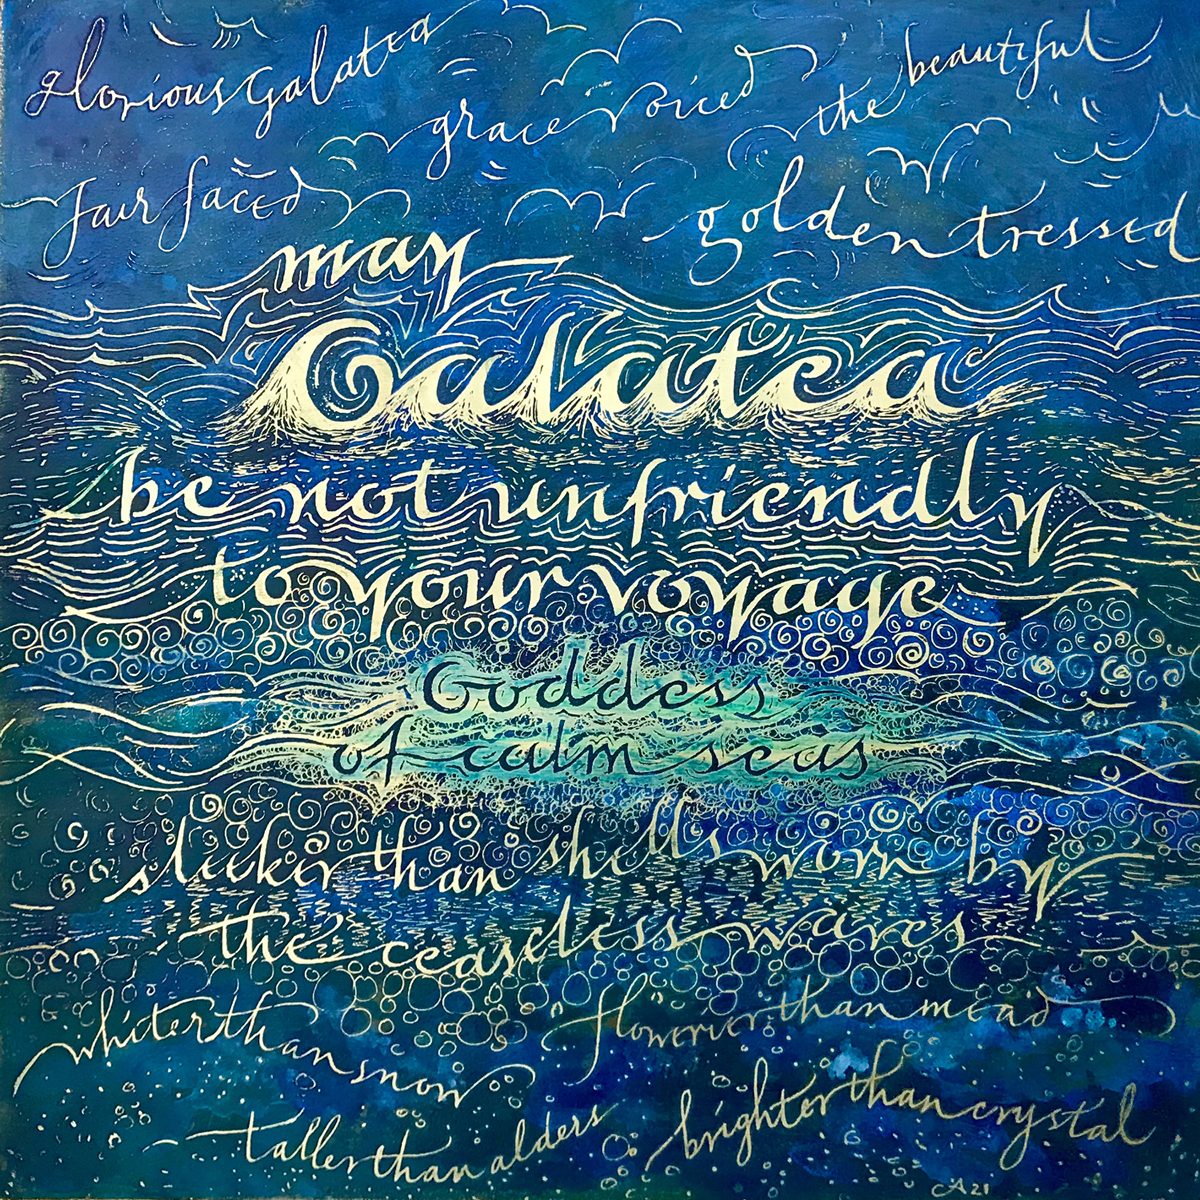 glorious Galatea
grace voiced
the beautiful
fair faced
golden tressed
may
Galatea
be not unfriendly
to your voyage
Goddess
of calm seas
sleeker than shells worn by
the ceaseless waves
whiter than snow
flowerier than mead
taller than alders
brighter than crystal
A21